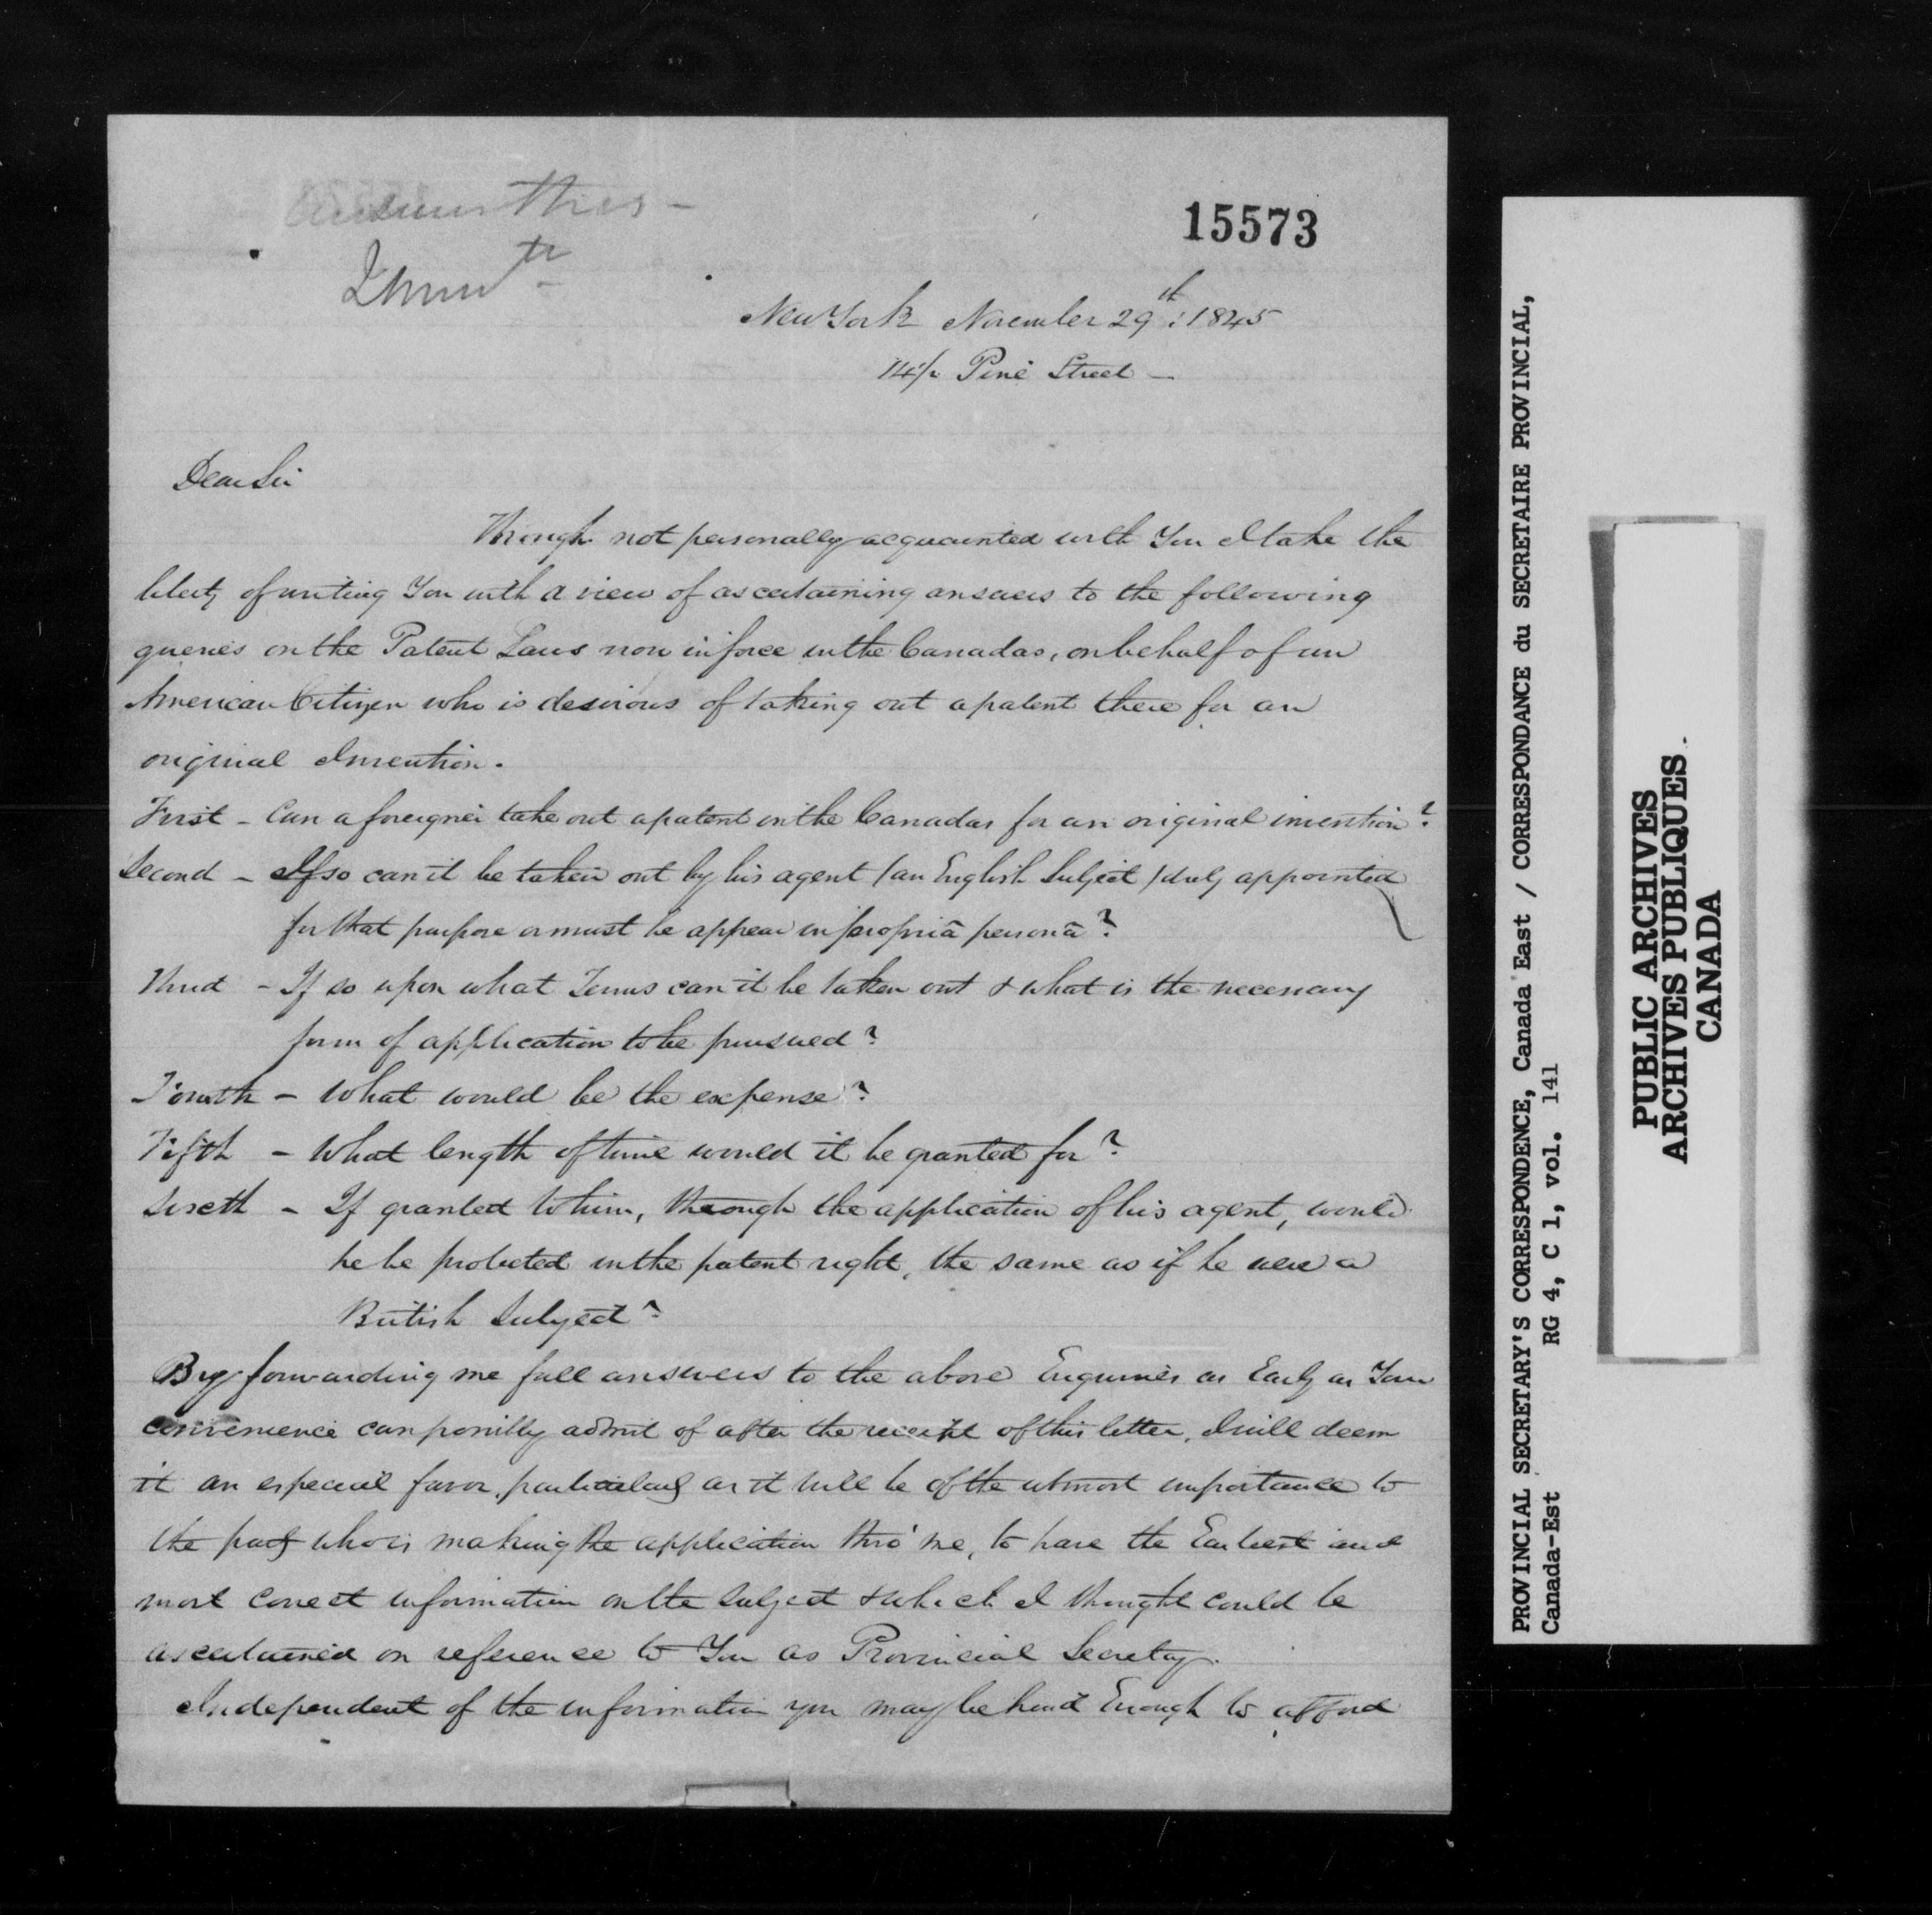 answer this -
15573
New York November 29th: 1845
14½ Pine Street -
Dear Sir
Though not personally acquainted with You I take the
liberty of writing You with a view of ascertaining answers to the following
queries on the Patent Laws now in force in the Canadas, on behalf of an
American Citizen who is desirous of taking out a patent there for an
original Invention.
First - Can a foreigner take out a patent in the Canadas for an original invention?
Second - If so can it be taken out by his agent /an English Subject/ duly appointed
for that purpose or must he appear in propriâ personâ?
Third - If so upon what Terms can it be taken out & what is the necessary
form of application to be pursued?
Fourth - What would be the expense?
Fifth - What length of time would it be granted for?
Sixth - If granted to him, through the application of his agent, would
he be protected in the patent right, the same as if he were a
British Subject?
By forwarding me full answers to the above Enquiries as Early as Your
convenience can possibly admit of after the receipt of this letter, I will deem
it an especial favor, particularly as it will be of the utmost importance to
the party who is making the application thro' me, to have the Earliest and
most correct information on the subject & which I thought could be
ascertained on reference to You as Provincial Secretary.
Independent of the information you may be kind Enough to afford
PROVINCIAL SECRETARY'S CORRESPONDENCE, Canada East / CORRESPONDANCE du SECRETAIRE PROVINCIAL,
Canada-Est RG 4, C 1, vol. 141
PUBLIC ARCHIVES
ARCHIVES PUBLIQUES
CANADA